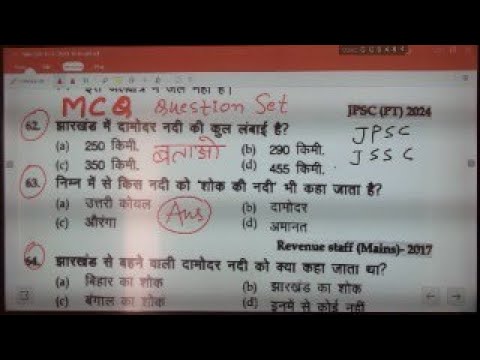 MCQ Question Set
JPSC (PT) 2024
62. झारखंड में दामोदर नदी की कुल लंबाई है?
JPSC
(a) 250 किमी. (b) 290 किमी.
बताओ
JSSC
(c) 350 किमी. (d) 455 किमी.
63. निम्न में से किस नदी को 'शोक की नदी' भी कहा जाता है?
(a) उत्तरी कोयल (b) दामोदर
Ans
(c) औरंगा (d) अमानत
Revenue staff (Mains)- 2017
64. झारखंड से बहने वाली दामोदर नदी को क्या कहा जाता था?
(a) बिहार का शोक (b) झारखंड का शोक
(c) बंगाल का शोक (d) इनमें से कोई नहीं